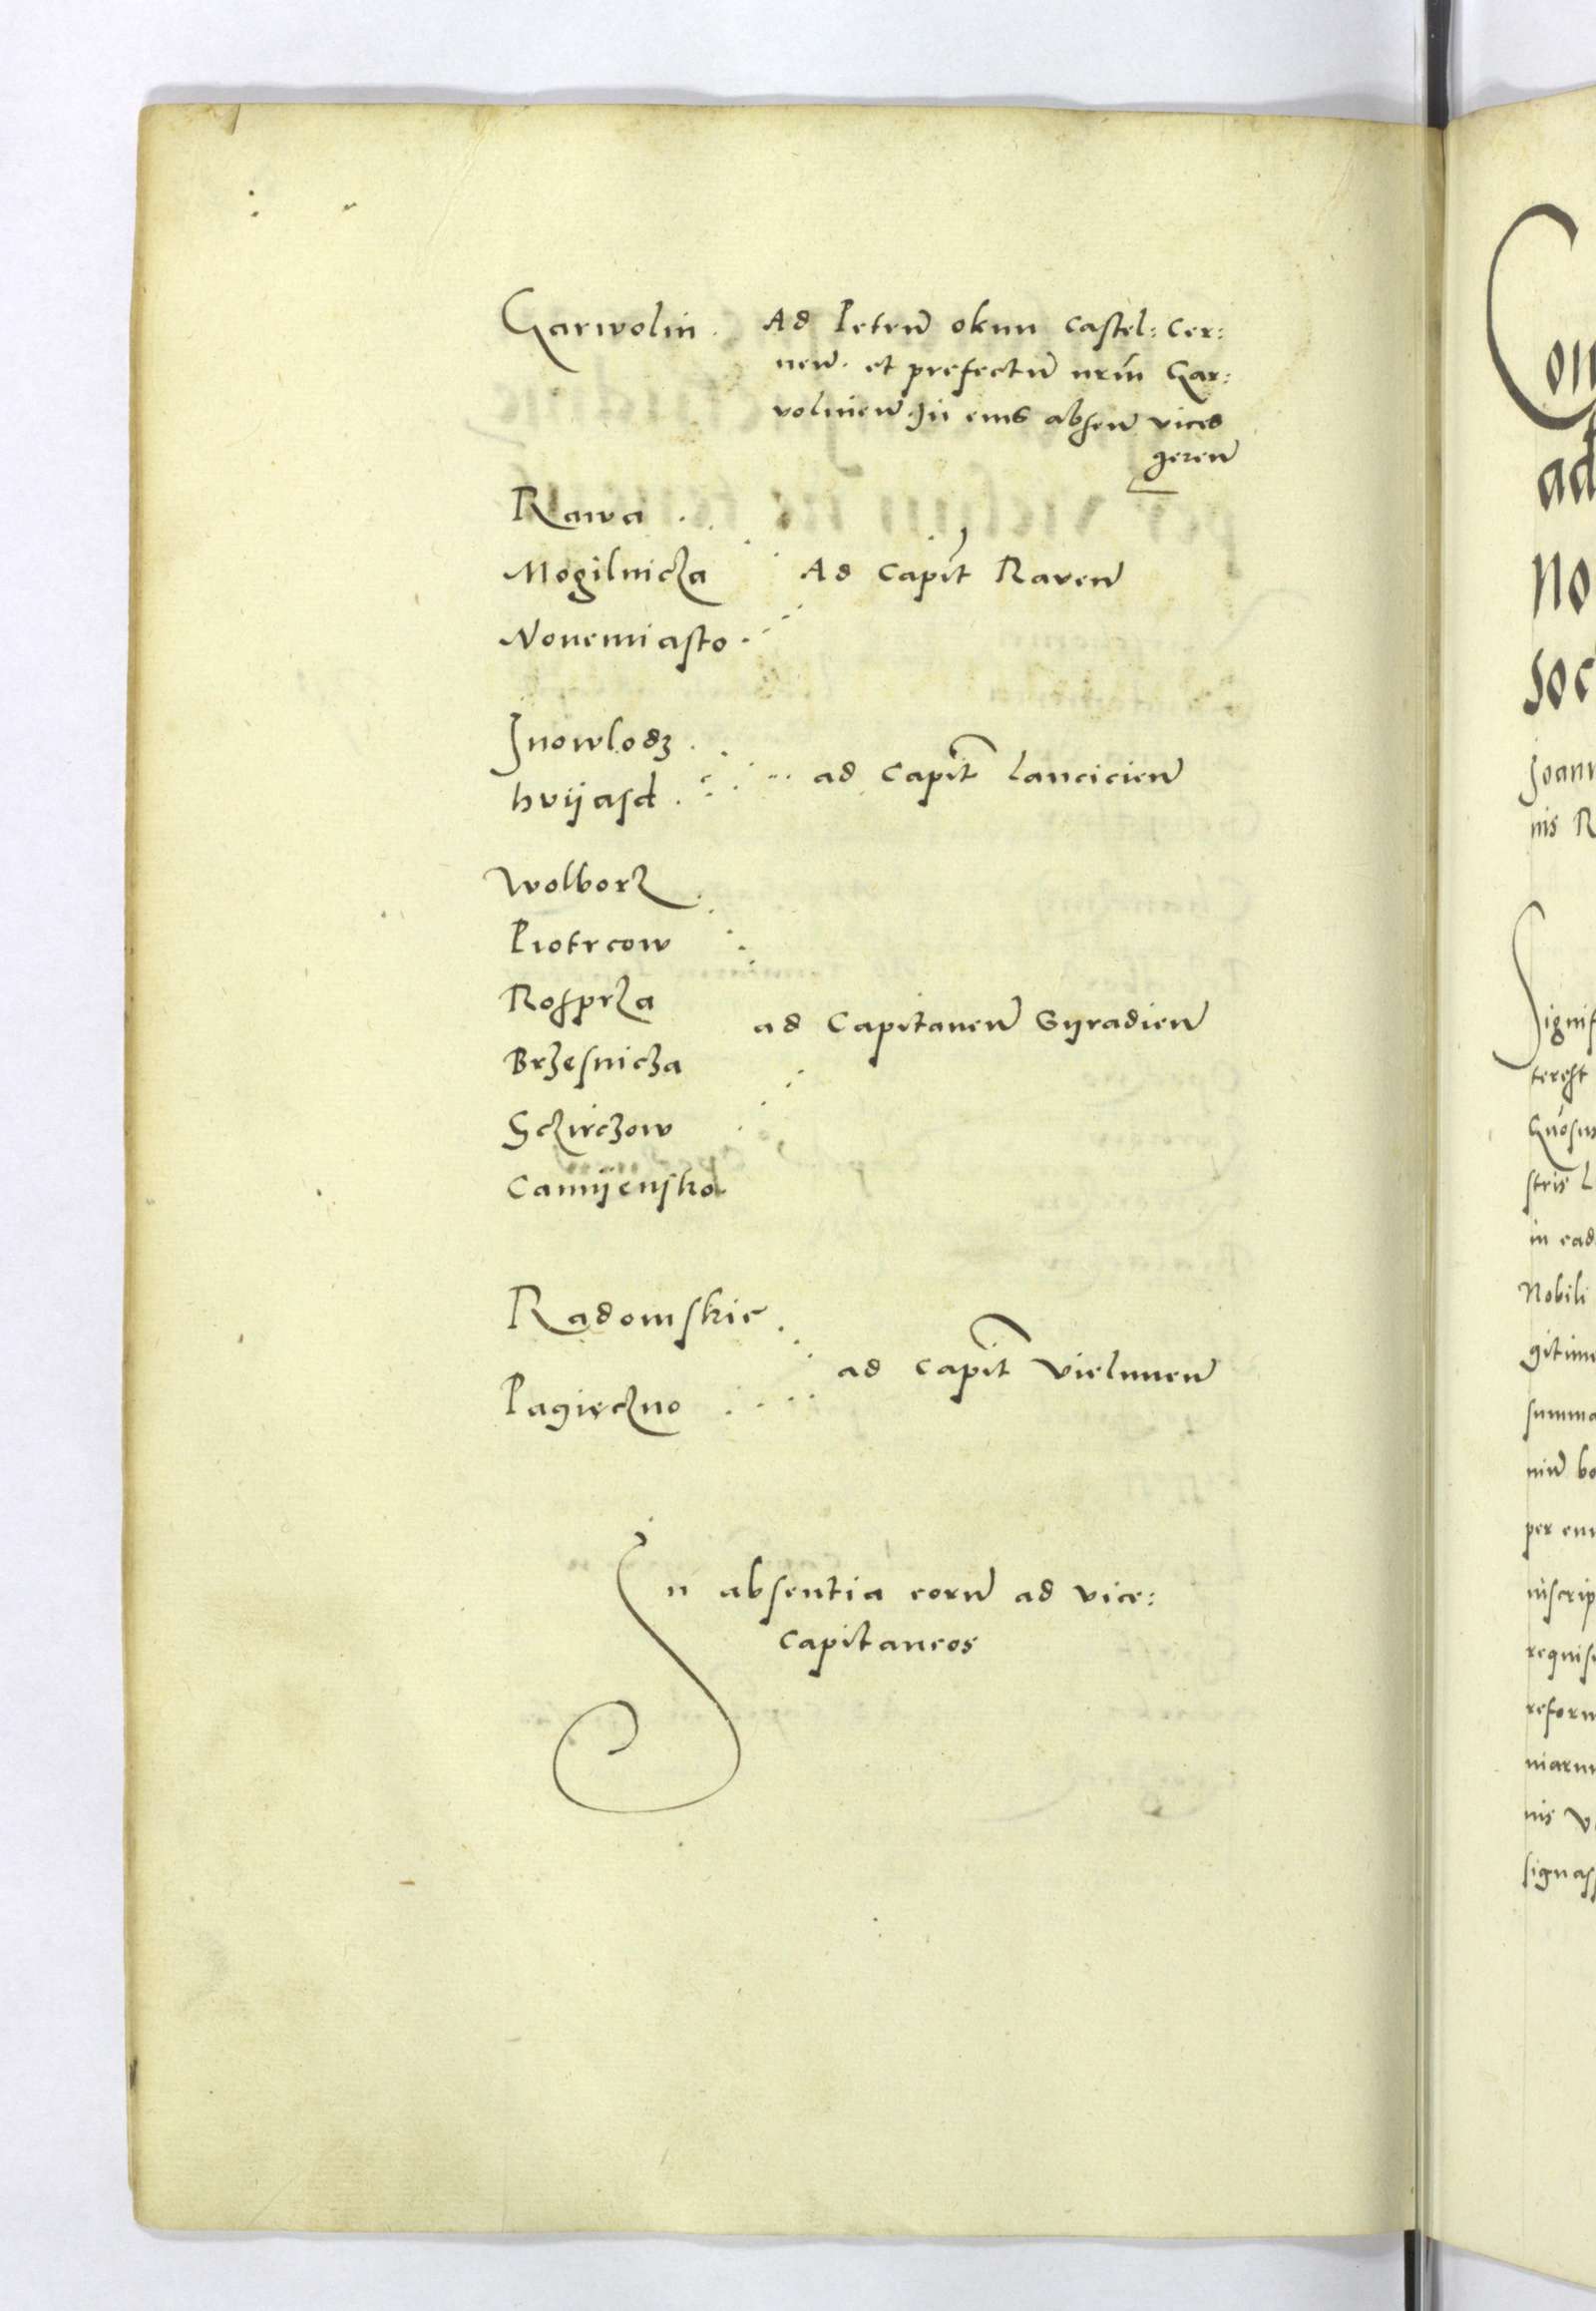 Garwolin . Ad Petrū okun castel: Cer:
neñ. et prefectū nrm̄ Gar:
volinieñ In eius abseñ vices
gereñ
Rawa .
Mogilnicza Ad Capit Raveñ
Novemiasto .
Inowlodz .
hvijasd . ad Capit Lancicieñ
Wolborz
Piotrcow
Rosprza
ad Capitaneū Syradieñ
Brzesnicza
Sczirczow
Camijensko
Radomskie .
ad Capit Vieluneñ
Pagieczno
In absentia eorū ad vice:
capitaneos
on
ad
no
soc
Joann
nis R
Signif
terest
stris L
in ead
Nobili
gitime
summa
niū bo
per eum
inscrip
requisi
reform
niarum
nis V
signass